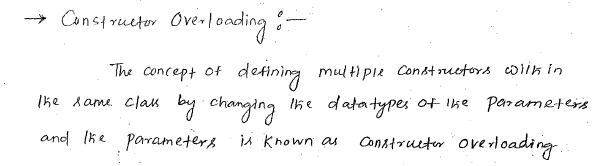 → Constructor Overloading :-
The concept of defining multiple constructors within
the same class by changing the datatypes of the parameters
and the parameters is known as constructor overloading.